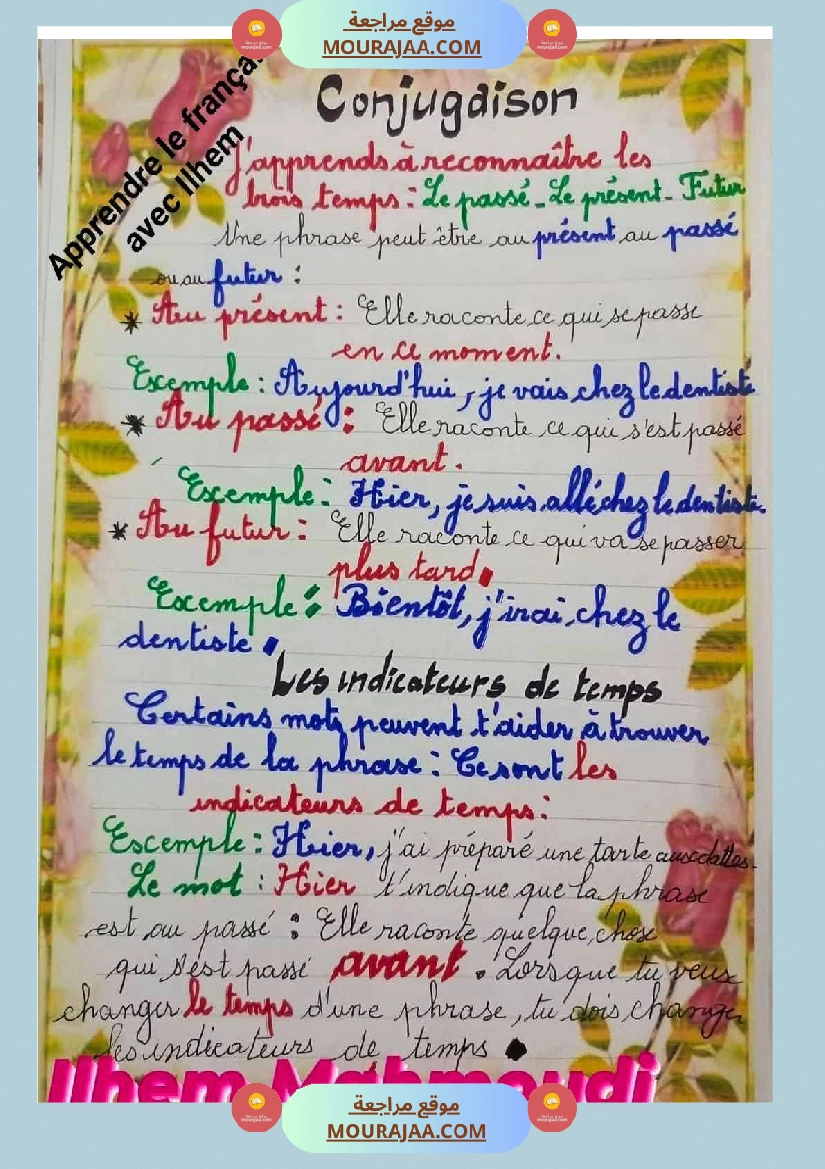 موقع مراجعة
MOURAJAA.COM
Apprendre le françai
avec Ilhem
Conjugaison
J'apprends à reconnaître les
trois temps : Le passé - Le présent - Futur
Une phrase peut être au présent, au passé
ou au futur :
* Au présent : Elle raconte ce qui se passe
en ce moment.
Exemple : Aujourd'hui, je vais chez le dentiste
* Au passé : Elle raconte ce qui s'est passé
avant.
Exemple : Hier, je suis allé chez le dentiste.
* Au futur : Elle raconte ce qui va se passer
plus tard.
Exemple : Bientôt, j'irai chez le
dentiste.
Les indicateurs de temps
Certains mots peuvent t'aider à trouver
le temps de la phrase : Ce sont les
indicateurs de temps :
Exemple : Hier, j'ai préparé une tarte aux dattes.
Le mot : Hier t'indique que la phrase
est au passé : Elle raconte quelque chose
qui s'est passé avant. Lorsque tu veux
changer le temps d'une phrase, tu dois changer
les indicateurs de temps.
Ilhem Mahmoudi
موقع مراجعة
MOURAJAA.COM